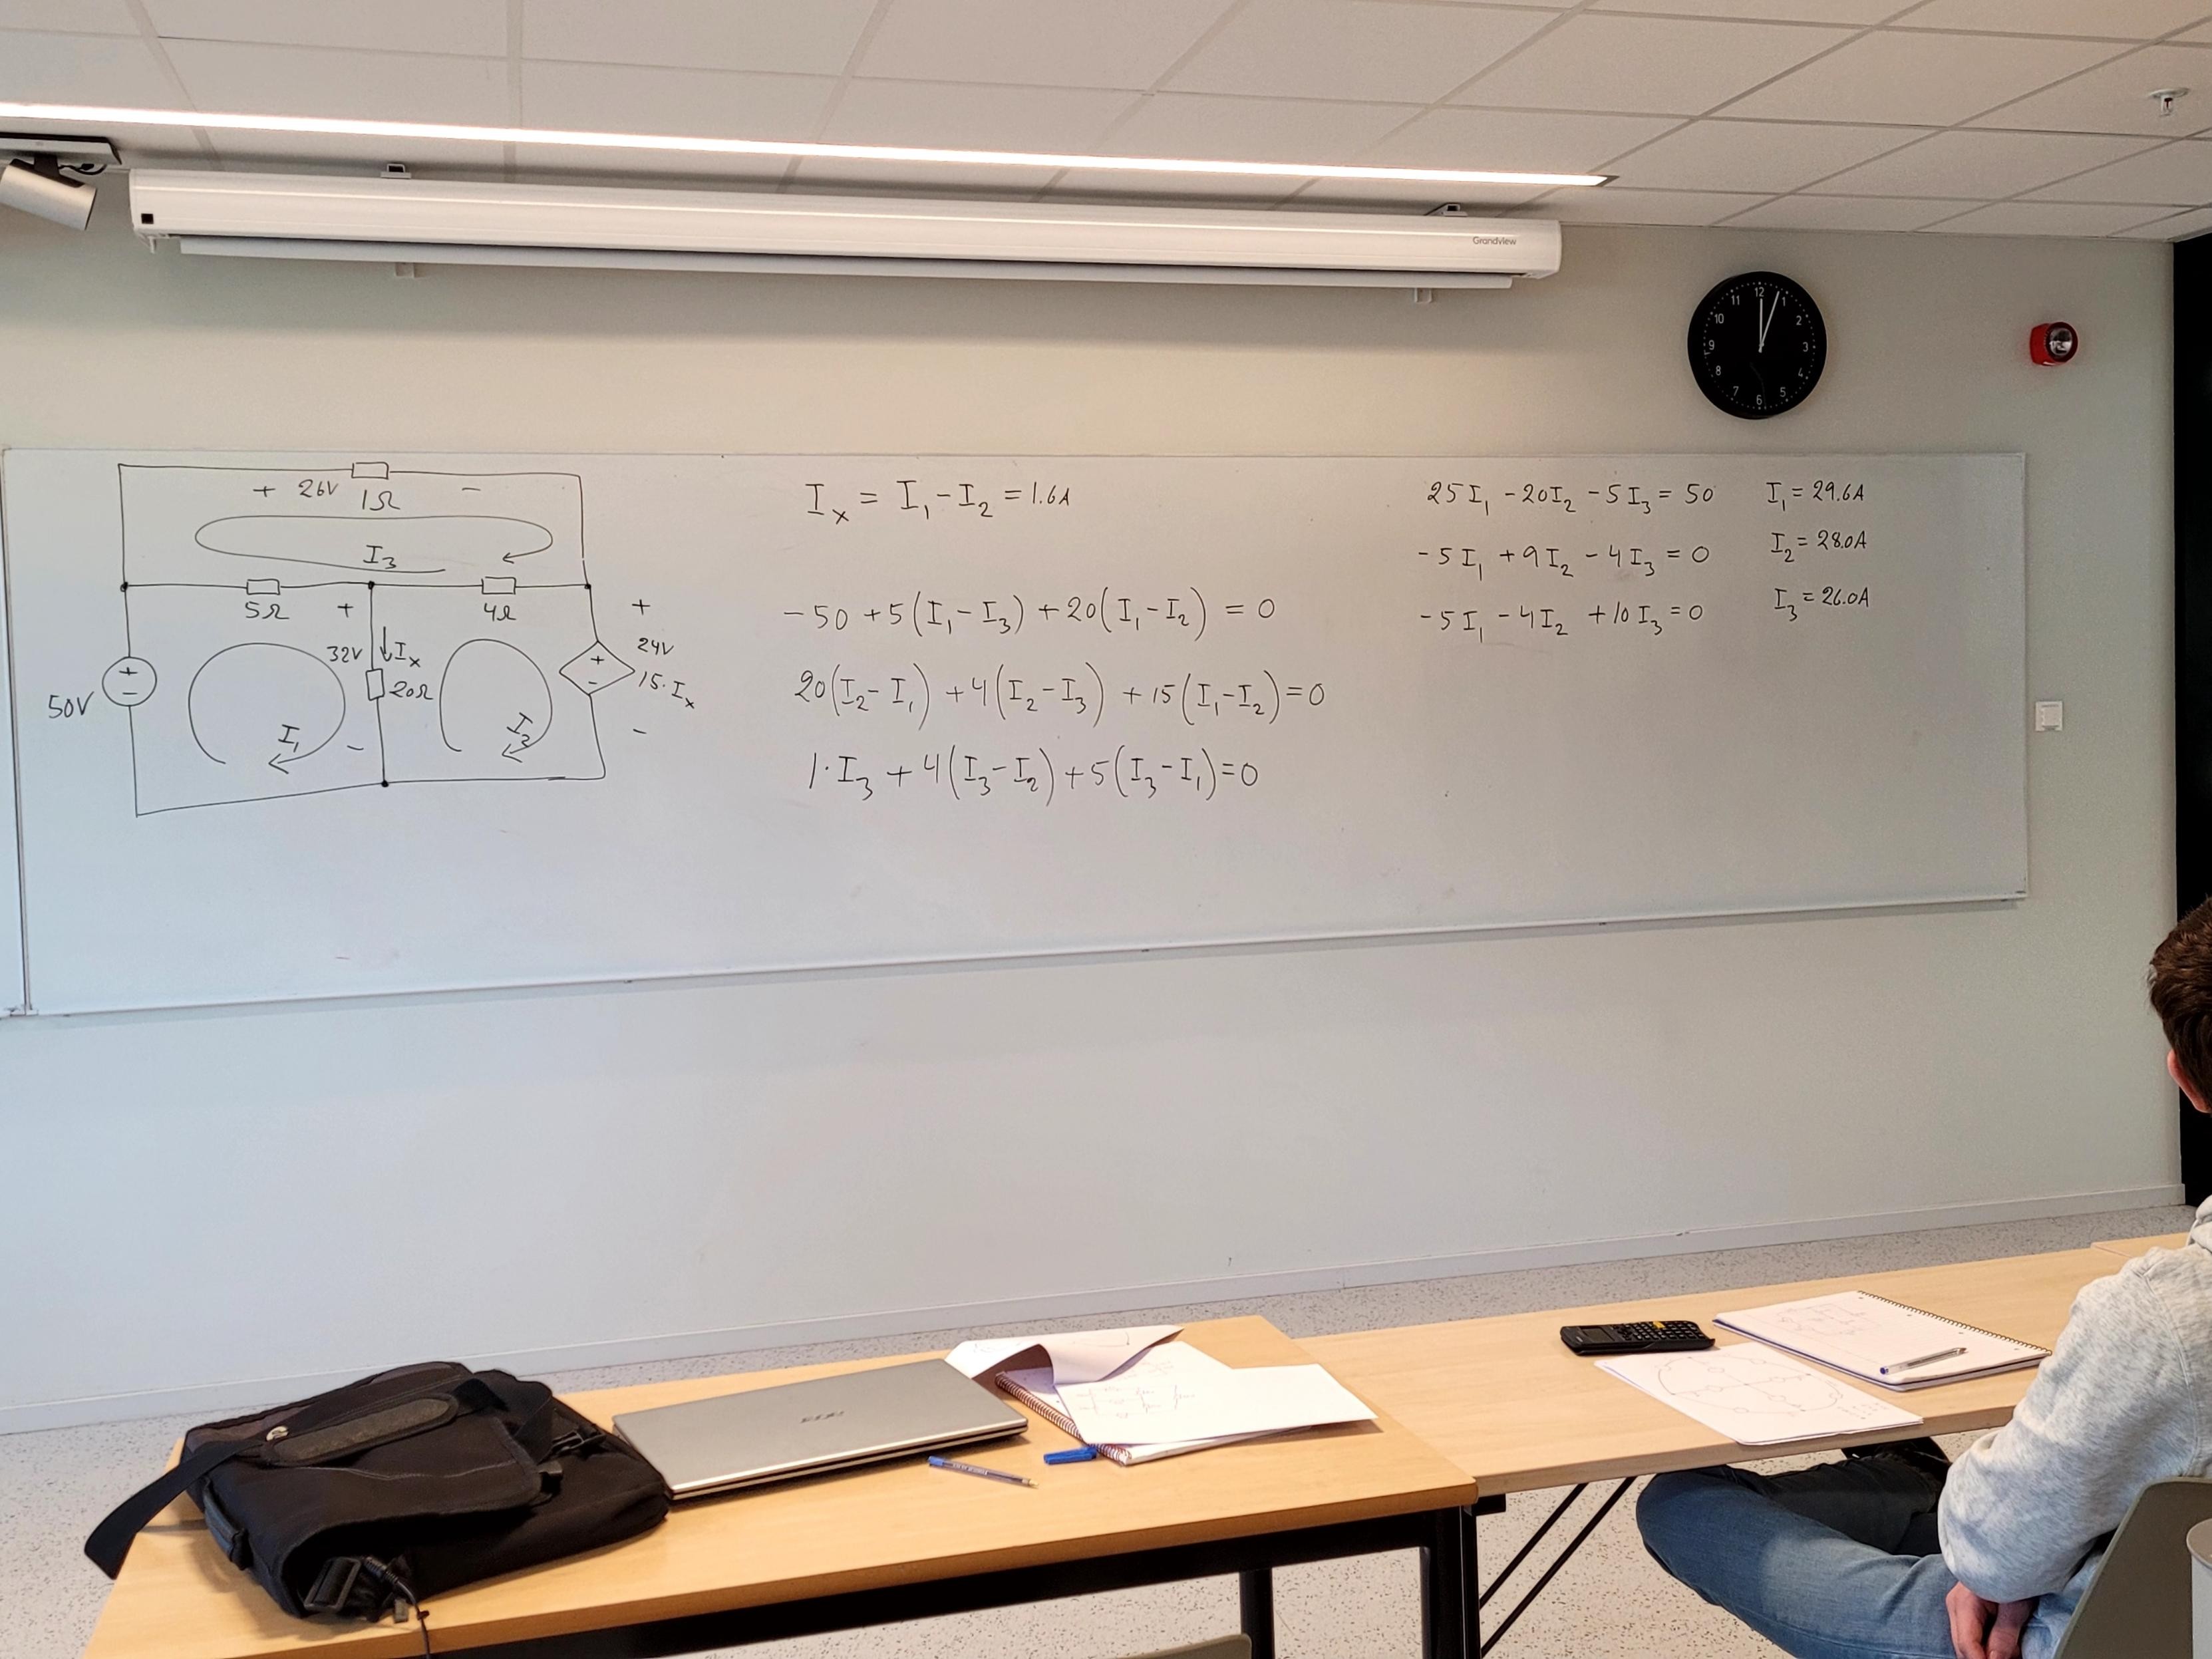 Grandview
11 12 1
10 2
9 3
8 4
7 6 5
+ 26V -
1Ω
I₃
5Ω
+
4Ω
+
32V
Iₓ
20Ω
24V
15·Iₓ
50V
+
-
+
-
I₁
-
I₂
-
Iₓ = I₁ - I₂ = 1.6A
-50 + 5(I₁ - I₃) + 20(I₁ - I₂) = 0
20(I₂ - I₁) + 4(I₂ - I₃) + 15(I₁ - I₂) = 0
1·I₃ + 4(I₃ - I₂) + 5(I₃ - I₁) = 0
25I₁ - 20I₂ - 5I₃ = 50
-5I₁ + 9I₂ - 4I₃ = 0
-5I₁ - 4I₂ + 10I₃ = 0
I₁ = 29.6A
I₂ = 28.0A
I₃ = 26.0A